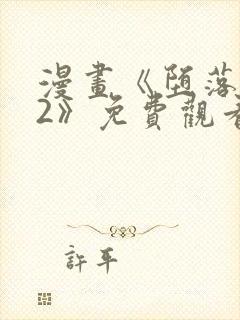 漫畫《墮落
2》免費觀看
許平